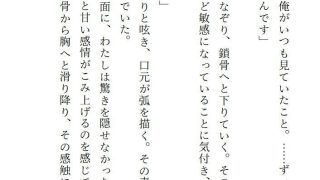 俺がいつも見ていたこと。……ず
んです」
なぞり、鎖骨へと下りていく。その
ど敏感になっていることに気付き、
」
りと呟き、口元が弧を描く。その表
でいた。
面に、わたしは驚きを隠せなかった
と甘い感情がこみ上げるのを感じて
骨から胸へと滑り降り、その感触に